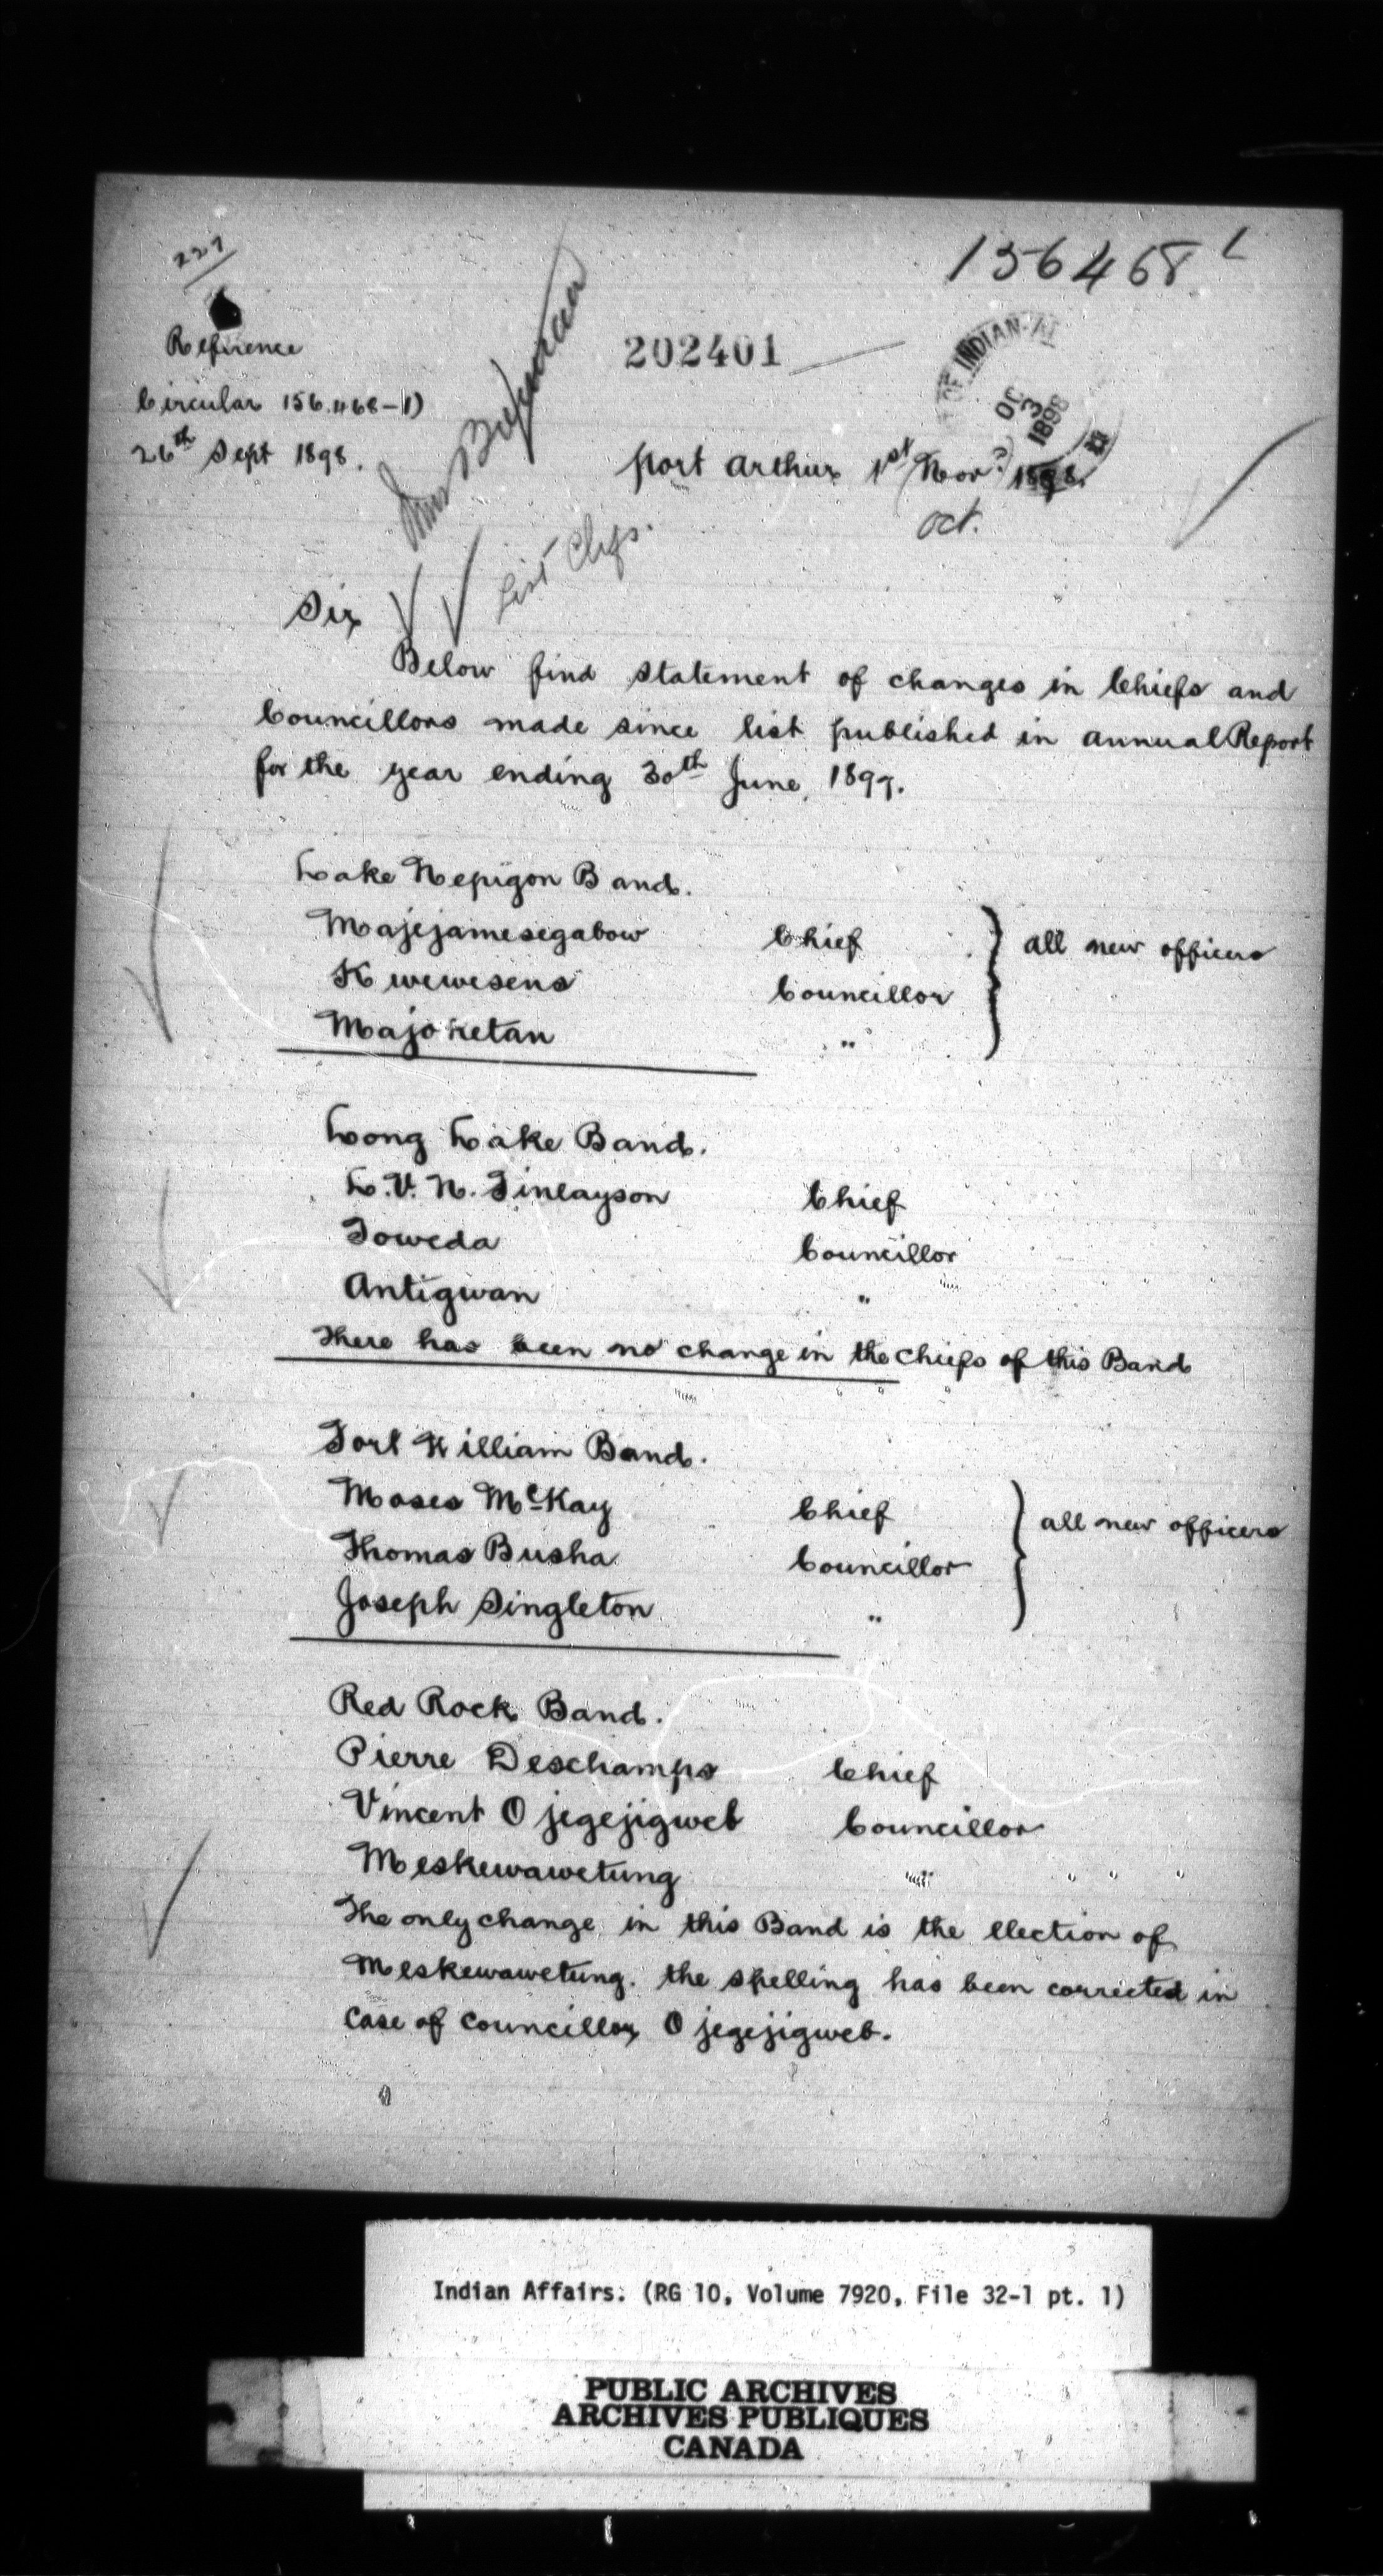 227
156468 L
Reference
202401
OF INDIAN A
OC 3 1898
Circular 156.468-1)
26th Sept 1898.
Port Arthur 1st Nov. 1898.
Oct.
List Chfs.
Sir
Below find statement of changes in Chiefs and
Councillors made since list published in annual Report
for the year ending 30th June, 1897.
Lake Nepigon Band.
Majejamesegabow Chief } all new officers
Kwewesens Councillor
Majoketan "
Long Lake Band.
L. V. N. Finlayson Chief
Toweda Councillor
Antigwan "
There has been no change in the Chiefs of this Band
Fort William Band.
Moses McKay Chief } all new officers
Thomas Busha Councillor
Joseph Singleton "
Red Rock Band.
Pierre Deschamps Chief
Vincent Ojegejigweb Councillor
Meskewawetung "
The only change in this Band is the Election of
Meskewawetung. the spelling has been corrected in
Case of Councillor Ojegejigweb.
Indian Affairs. (RG 10, Volume 7920, File 32-1 pt. 1)
PUBLIC ARCHIVES
ARCHIVES PUBLIQUES
CANADA